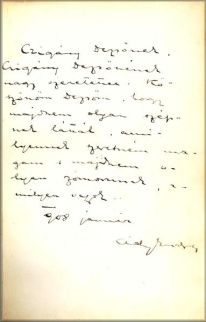 Czigány Dezsőnek,
Czigány Dezsőnének
nagy szeretettel. Kö-
szönöm Dezsőm, hogy
majdnem olyan szép-
nek láttál, ami-
lyennek szeretném ma-
gam s majdnem o-
lyan szomorúnak, a-
milyen vagyok.
908 január
Ady Endre